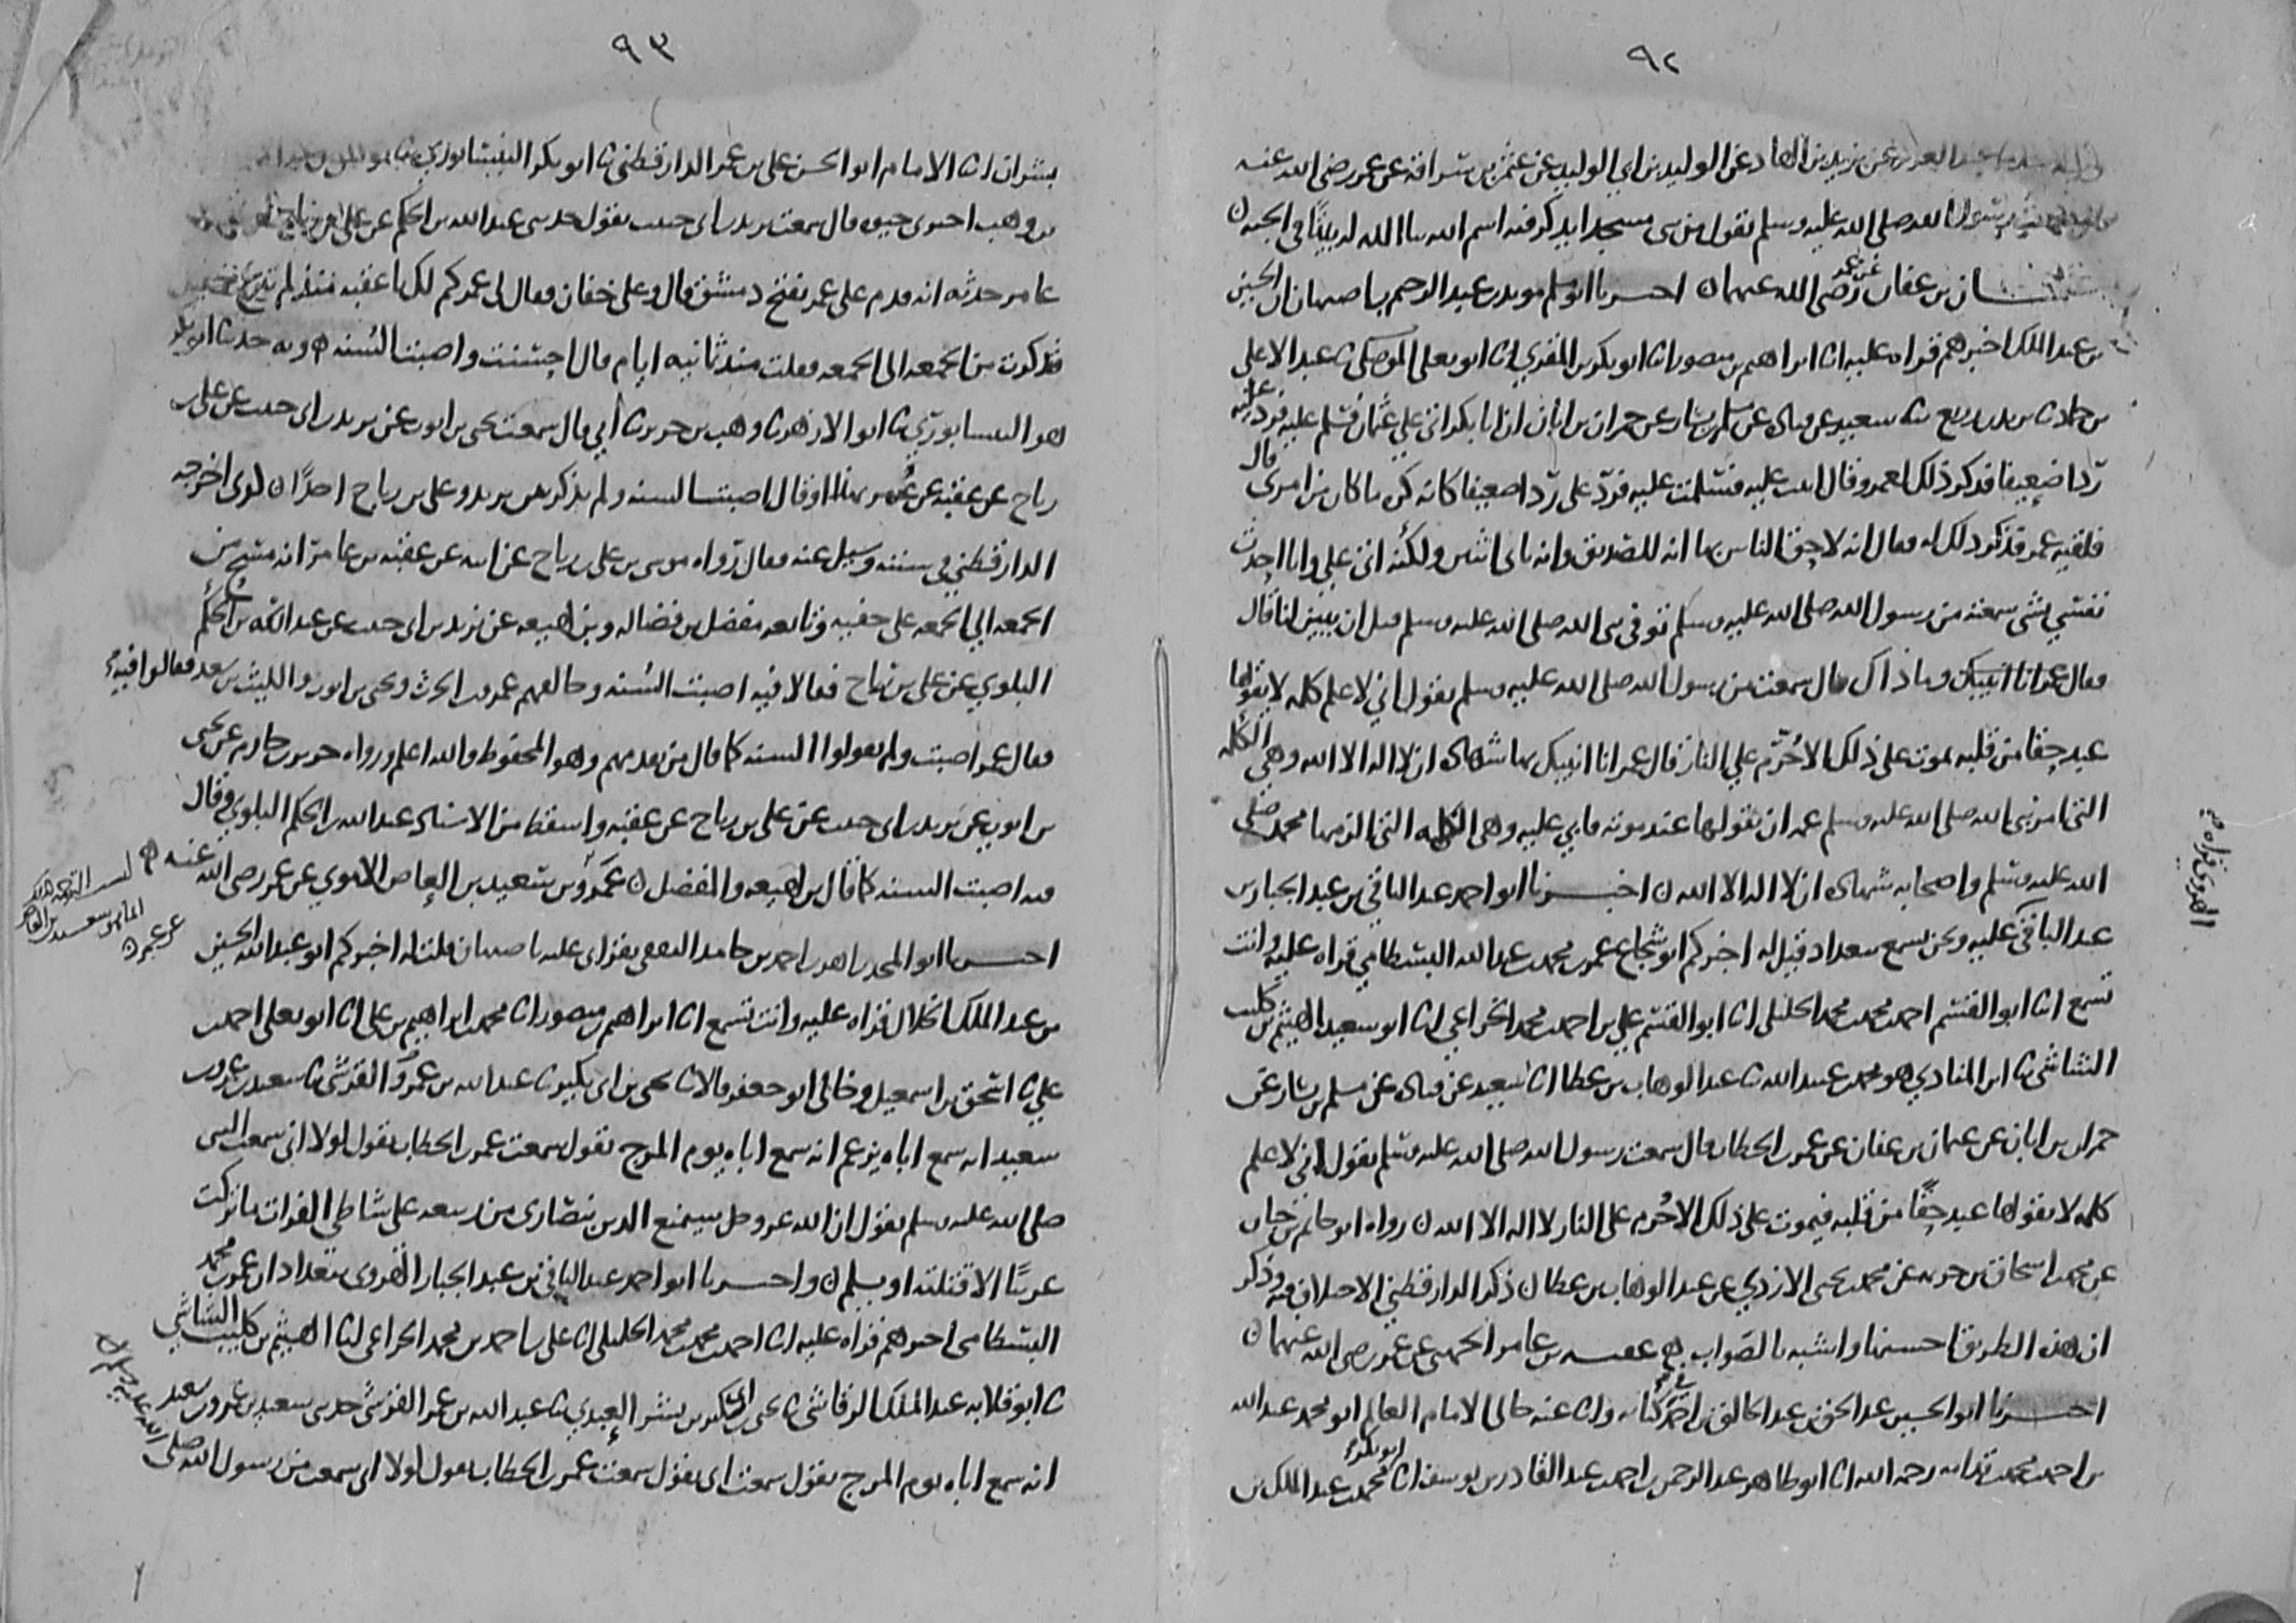 ٩٢
عن يزيد بن الهاد عن الوليد بن ابي الوليد عن عثمن بن سراقة عن عمر رضي الله عنه
رسول الله صلى الله عليه وسلم يقول من بنى مسجدا يذكر فيه اسم الله بنا الله له بيتا في الجنة
بن عفان عن عمر رضي الله عنهما اخبرنا ابو مسلم مويد بن عبد الرحيم باصبهان ان الحسين
بن عبد الملك اخبرهم قراه عليه انا ابراهيم بن منصور انا ابو بكر بن المقري انا ابو يعلى الموصلي ثنا عبد الاعلى
بن حماد ثنا يزيد بن زريع ثنا سعيد عن قتاده عن مسلم بن يسار عن حمران بن ابان ان ابا بكر اتى علي عثمان فسلم عليه فرد عليه
ردا ضعيفا فذكر ذلك لعمر وقال اتيت عليه فسلمت عليه فرد على ردا ضعيفا كانه كره ما كان من امرى قال
فلقيه عمر فذكر ذلك له فقال انه لاحق الناس بها انه للصديق وانه ثاني اثنين ولكنه اتى علي وانا احدث
نفسي بشى سمعته من رسول الله صلى الله عليه وسلم توفى نبى الله صلى الله عليه وسلم قبل ان يبين لنا قال
فقال عمر انا انبيك وما ذاك قال سمعت من رسول الله صلى الله عليه وسلم يقول اني لاعلم كلمه لا يقولها
عبد حقا من قلبه يموت على ذلك الا حرم علي النار قال عمر انا انبيك بها شهاده ان لا اله الا الله وهي الكلمه
التى امر نبى الله صلى الله عليه وسلم عمه ان يقولها عند موته فابى عليه وهى الكلمه التى الزمها محمد صلى
الله عليه وسلم واصحابه شهاده ان لا اله الا الله اخبرنا ابو احمد عبد الباقي بن عبد الجبار بن
عبد الباقي عليه ونحن نسمع ببغداد قيل له اخبركم ابو شجاع عمر بن محمد بن عبد الله البسطامي قراه عليه وانت
تسمع انا ابو القسم احمد بن محمد بن محمد الخليلى انا ابو القسم علي بن احمد بن محمد الخزاعي انا ابو سعيد الهيثم بن كليب
الشاشي ثنا ابن المنادي هو محمد بن عبيد الله ثنا عبد الوهاب بن عطا انا سعيد عن قتاده عن مسلم بن يسار عن
حمران بن ابان عن عثمان بن عفان عن عمر بن الخطاب قال سمعت رسول الله صلى الله عليه وسلم يقول اني لاعلم
كلمه لا يقولها عبد حقا من قلبه فيموت على ذلك الا حرم على النار لا اله الا الله رواه ابو حاتم بن حبان
عن محمد بن اسحاق بن خزيمه عن محمد بن يحيى الازدي عن عبد الوهاب بن عطا ذكر الدارقطني الاختلاف فيه وذكر
ان هذه الطريق احسنها واشبه بالصواب عقبه بن عامر الجهني عن عمر رضي الله عنهما
اخبرنا ابو الحسين عبد الحق بن عبد الخالق بن احمد كتابه وانا عنه خالى الامام العالم ابو محمد عبد الله
بن احمد بن محمد بن قدامه رحمه الله انا ابو طاهر عبد الرحمن بن احمد بن عبد القادر بن يوسف انا ابو بكر محمد بن عبد الملك بن
٩٣
بشران انا الامام ابو الحسن على بن عمر الدارقطنى ثنا ابو بكر النيسابوري ثنا
بن وهب اخبرنى حيوه قال سمعت يزيد بن ابى حبيب يقول حدثنى عبد الله بن الحكم عن على بن رباح
عامر حدثه انه قدم على عمر بفتح دمشق قال وعلى خفان فقال لى عمر كم لك يا عقبه منذ لم تنزع خفيك
فذكرت من الجمعه الى الجمعه فقلت منذ ثمانيه ايام قال احسنت واصبت السنه وبه حدثنا ابو بكر
هو النيسابوري ثنا ابو الازهر ثنا وهب بن جرير ثنا ابي قال سمعت يحيى بن ايوب عن يزيد بن ابى حبيب عن على بن
رباح عن عقبه عن عمر بهذا وقال اصبت السنه ولم يذكر بين يزيد وعلى بن رباح احدا اخرجه
الدارقطني في سننه وسيل عنه فقال رواه موسى بن على بن رباح عن ابيه عن عقبه بن عامر انه مسح من
الجمعه الي الجمعه على خفيه وتابعه مفضل بن فضاله وبن لهيعه عن يزيد بن ابى حبيب عن عبد الله بن الحكم
البلوي عن على بن رباح فقالا فيه اصبت السنه وخالفهم عمرو بن الحرث ويحيى بن ايوب والليث بن سعد فقالوا فيه
فقال عمر اصبت ولم يقولوا السنه كما قال من تقدمهم وهو المحفوظ والله اعلم ورواه جرير بن حازم عن يحيى
بن ايوب عن يزيد بن ابى حبيب عن على بن رباح عن عقبه واسقط من الاسناد عبد الله بن الحكم البلوي وقال
فيه اصبت السنه كما قال بن لهيعه والمفضل عمرو بن سعيد بن العاص الاموي عن عمر رضي الله عنه
اخبرنا ابو المجد زاهر بن احمد بن حامد الثقفى بقراتى عليه باصبهان قلت له اخبركم ابو عبد الله الحسين
بن عبد الملك الخلال قراه عليه وانت تسمع انا ابراهيم بن منصور انا محمد بن ابراهيم بن على انا ابو يعلى احمد بن
علي ثنا اسحق بن اسمعيل وخالى ابو جعفر قالا ثنا يحيى بن ابى بكير ثنا عبد الله بن عمرو القرشى ثنا سعيد بن عمرو بن
سعيد انه سمع اباه يزعم انه سمع اباه يوم المرج يقول سمعت عمر بن الخطاب يقول لولا انى سمعت النبى
صلى الله عليه وسلم يقول ان الله عز وجل سيمنع الدين بنصارى من ربيعه على شاطى الفرات ما تركت
عربيا الا قتلته او يسلم واخبرنا ابو احمد عبد الباقي بن عبد الجبار الهروى ببغداد ان عمر بن محمد
البسطامى اخبرهم قراه عليه انا احمد بن محمد بن محمد الخليلى انا على بن احمد بن محمد الخزاعى انا الهيثم بن كليب الشاشي
ثنا ابو قلابه عبد الملك الرقاشى ثنا يحيى بن ابى بكير بن بشر العبدي ثنا عبد الله بن عمر القرشى حدثنى سعيد بن عمرو بن سعيد
انه سمع اباه يوم المرج يقول سمعت ابى يقول سمعت عمر بن الخطاب يقول لولا انى سمعت من رسول الله صلى
الله عليه وسلم